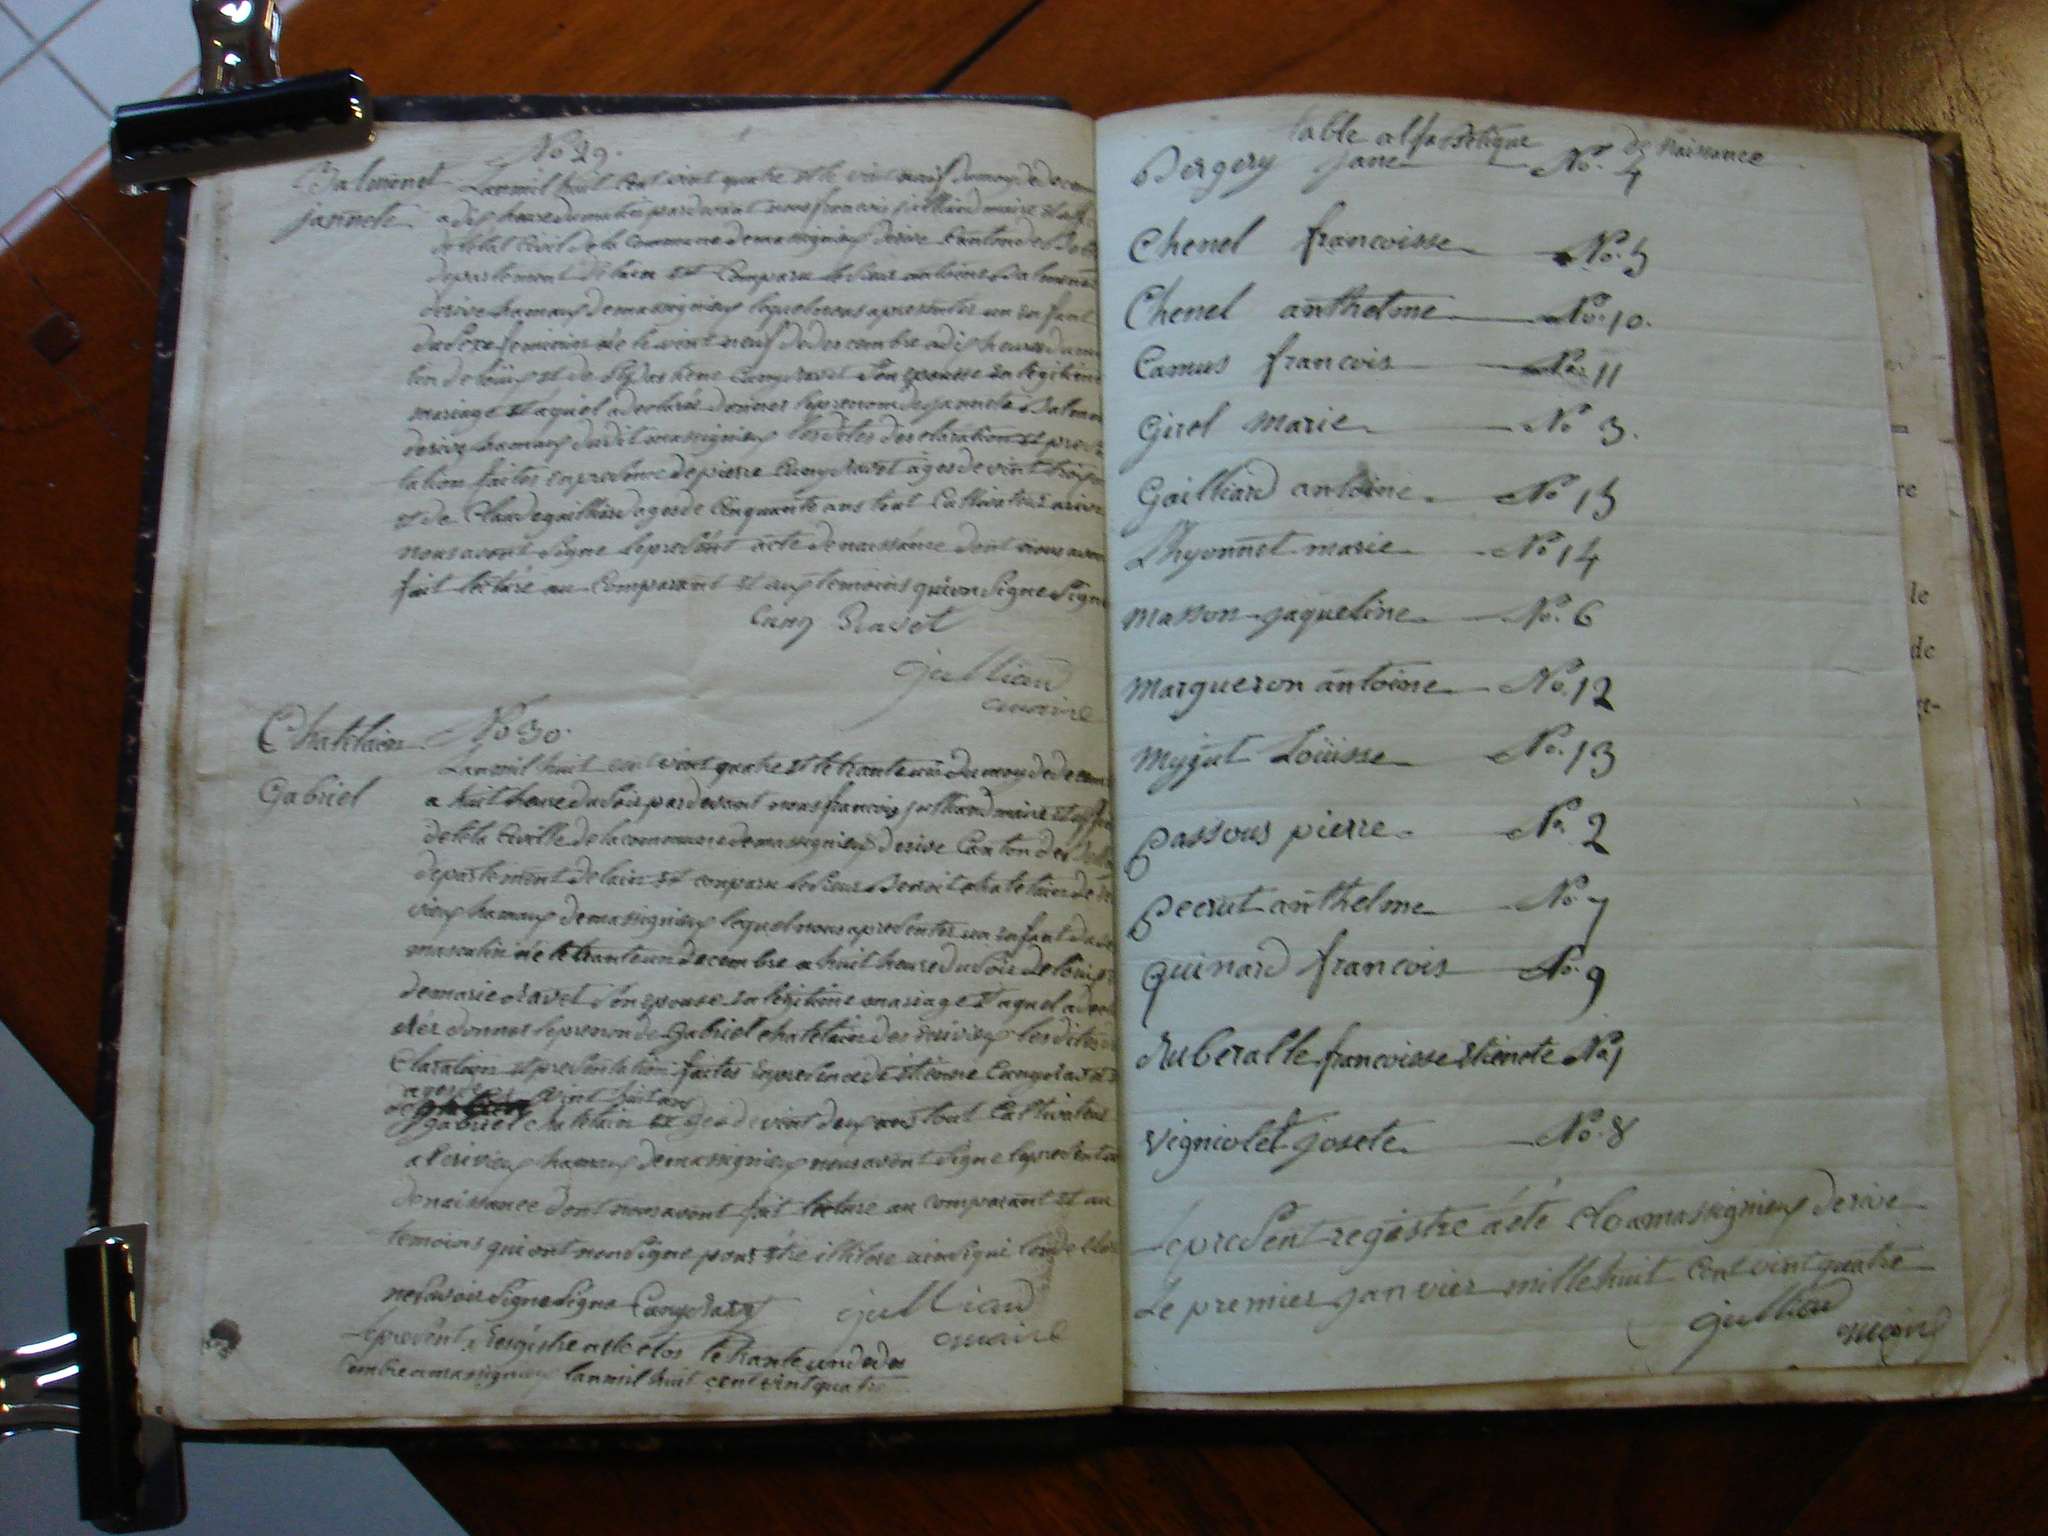 No 29.
Balmonet
jannete
Lanmil huit cent vint quatre et le vint neuf du moy de decem
a dix heure du matin pardevant nous francois julliand maire et off
de létat Civil de la Commune demassignieux derive Canton de Bel
departement delain est Comparu le sieur antoine Balmonet
derive hamaux demassignieux lequel nous apresenter un enfant
du sexe feminin née le vint neuf de decembre a dix heures du ma
tin de lüiy et de Cungravet son epousse en legitime
mariage et aquel a declarée donner leprenom de jannete Balmon
derive hamaux dudit massignieux les dites declaration et presen
tation faites enpresence de pierre Cungravet âges de vint trois
et de Claude gailliard ages de Cinquante ans tout Cultivateur arive
nous avont signe lepresent acte de naissance dont nous avon
fait lecture au Comparant et aux temoins quion signe signe
Cung Ravet
julliand
maire
Chatelain
Gabriel
No 30.
Lanmil huit cent vint quatre et le trante un du moy de decem
a huit heure du soir pardevant nous francois julliand maire et offi
de léta Civille de la commune demassignieux derive Canton de Bell
departement de lain est comparu le sieur Benoit chatelain de
vieux hamaux demassignieux lequel nous apresenter un enfant du se
masculin née le trante un decembre a huit heure du soir de lüi
demarie Ravet son epouse en legitime mariage et aquel a decl
rée donner leprenon de Gabriel chatelain des rivieux les dites
Claration et presentation faites enpresence de etienne Cungravet
ages de vint huit ans
de gabriel chatelain et ages de vint deux ans tout Cultivateur
a lerivieux hamaux demassignieux nous avont signe lepresent ac
de naissance dont nous avont fait lecture au comparant et au
temoins qui ont non signe pour etre ilitere ainsi qui
ne savoir signe signe Cungravet
julliand
maire
Le present Registre a ete clos le trante un de de
cembre amassignieux lanmil huit cent vint quatre
table alfabetique de Naissance
Bergery jane No. 4
Chenel francoisse No. 5
Chenel anthelme No. 10.
Camus francois No. 11
Girel marie No 3.
Gailliard antoine No 15
Lhyonnet marie No 14
masson jaqueline No. 6
margueron antoine No. 12
mygut Loüisse No. 13
passour pierre No. 2
pecrut anthelme No 7
quinard francois No. 9
Ruberalle francoisse etienete No 1
vigniolet josete No. 8
Le present registre a été clo amassignieux derive
Le premier janvier mille huit cent vint quatre
julliand
maire